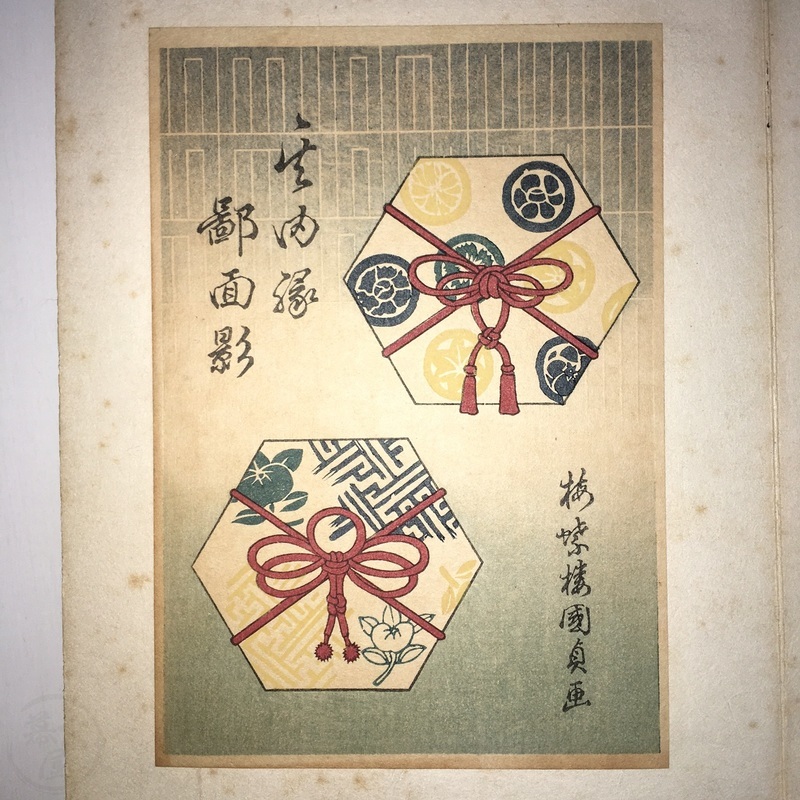 其由縁
鄙面影
梅蝶樓國貞画